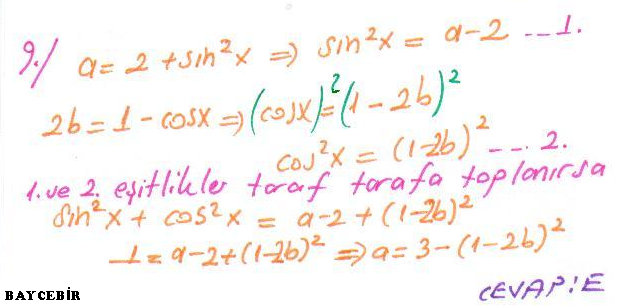 9./ a = 2 + sin²x ⇒ sin²x = a-2 ... 1.
2b = 1 - cosx ⇒ (cosx)² = (1 - 2b)²
cos²x = (1-2b)² ... 2.
1. ve 2. eşitlikler taraf tarafa toplanırsa
sin²x + cos²x = a-2 + (1-2b)²
1 = a-2+(1-2b)² ⇒ a = 3-(1-2b)²
BAYCEBİR
CEVAP:E